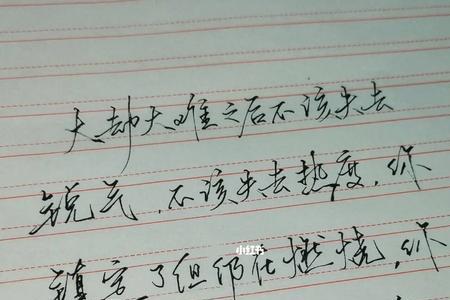 大劫大难之后不该失去
锐气，不该失去热度，你
镇定了但仍在燃烧，你
小红书